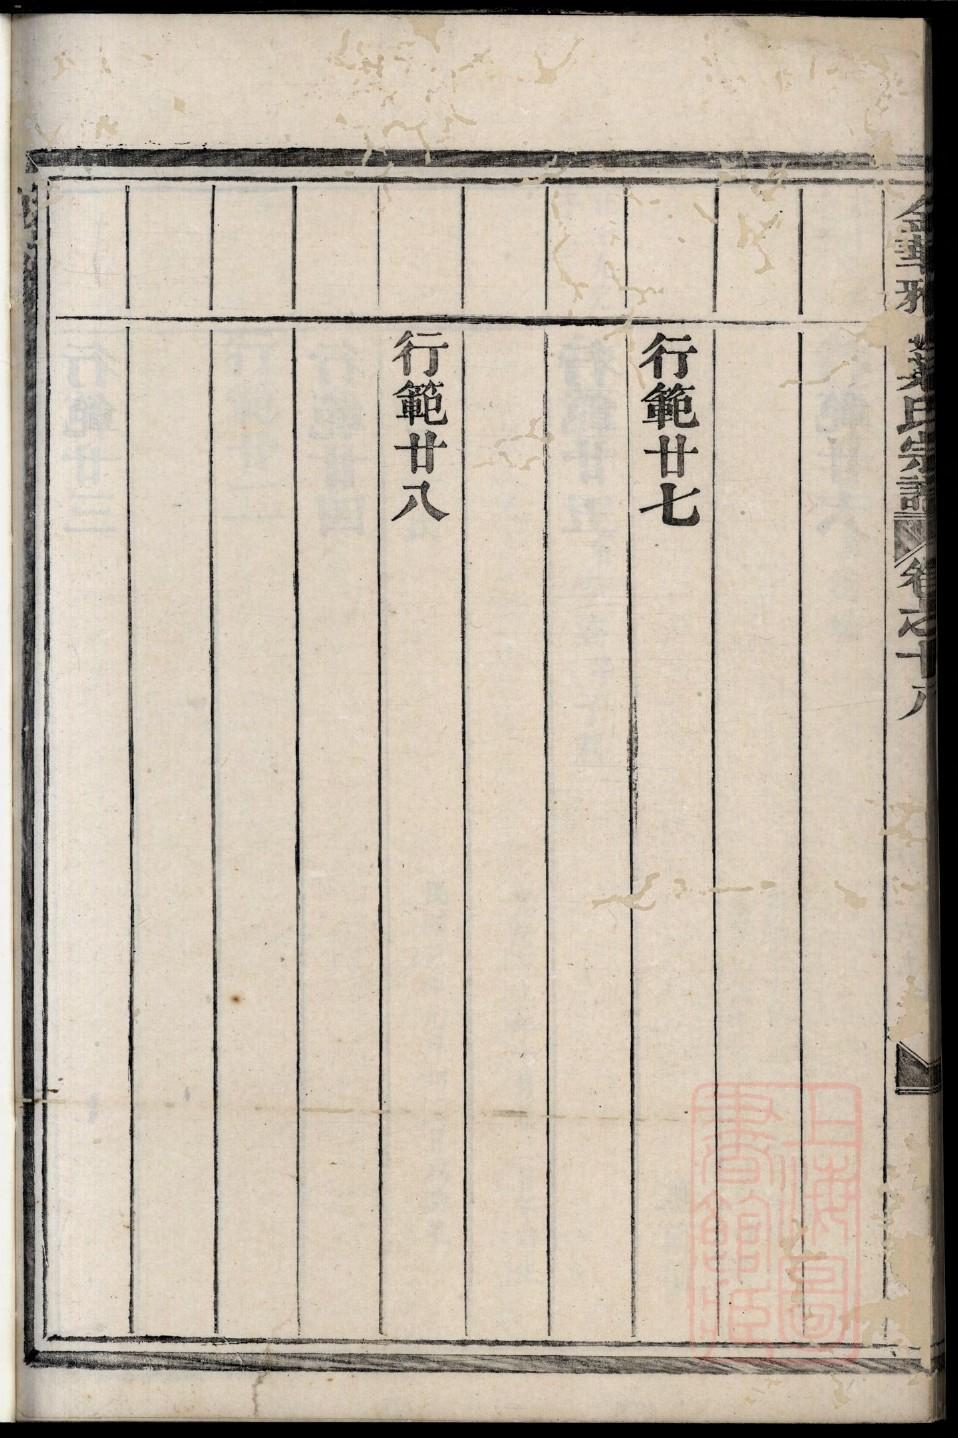 金華
氏宗譜
卷之十八
行範廿七
行範廿八
上海圖書館藏